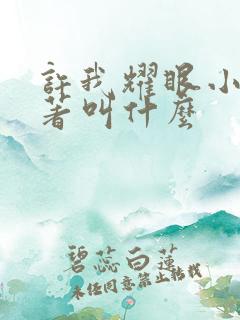 許我耀眼小
著叫什麼
碧蕊白蓮
未经同意禁止转载